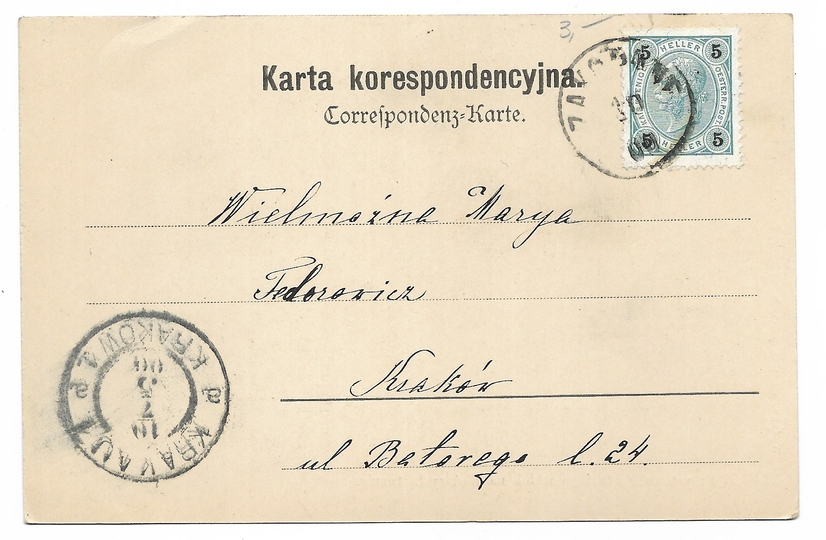 3,
Karta korespondencyjna.
Correſpondenz-Karte.
5 HELLER 5
OESTERR. POST.
5 HELLER 5
Wielmożna Marya
Fedorowicz
Kraków
ul Batorego l. 24.
KRAKÓW 1
KRAKAU 1
10
7 5
00